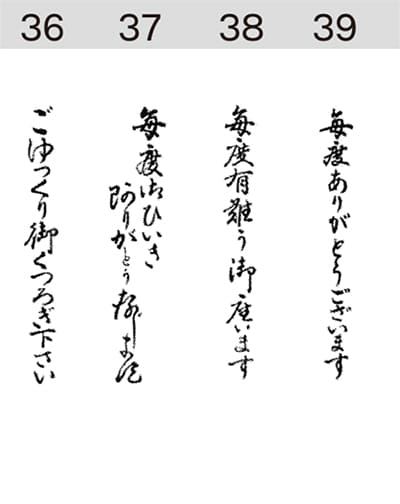 36 37 38 39
ごゆっくり御くつろぎ下さい
毎度御ひいき
阿りがとう存じます
毎度有難う御座います
毎度ありがとうございます